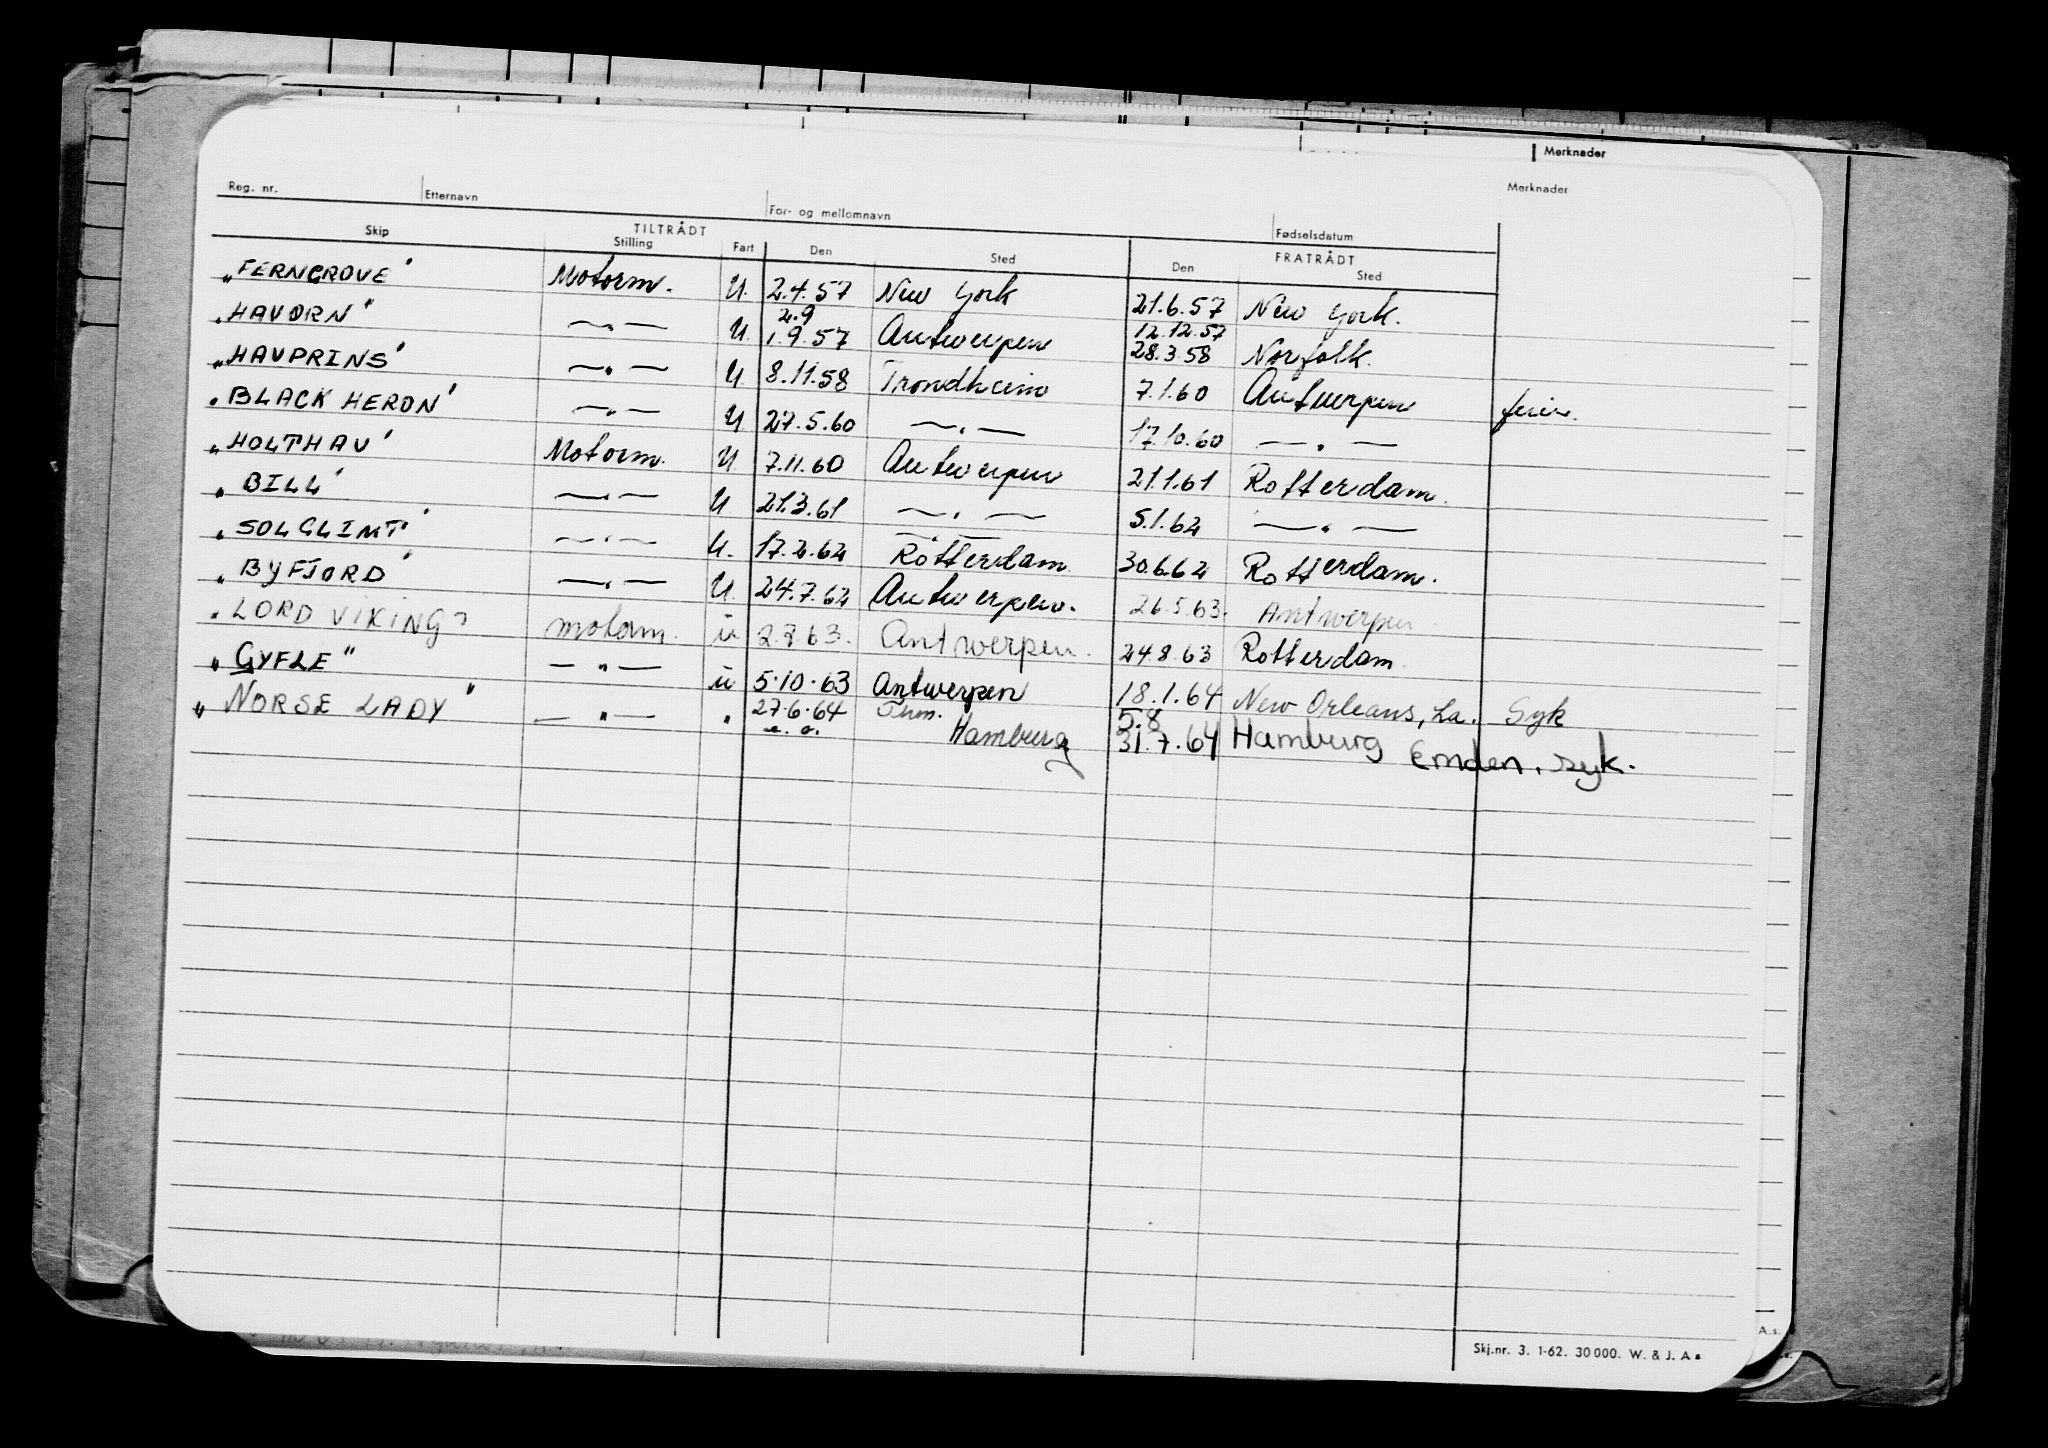 Merknader
Reg. nr. Etternavn For- og mellomnavn Fødselsdatum Merknader
Skip TILTRÅDT FRATRÅDT
Stilling Fart Den Sted Den Sted
„FERNGROVE" Motorm. U. 2.4.57 New York 21.6.57 New York.
2.9 12.12.57
„HAVØRN" —„— U. 1.9.57 Antwerpen 28.3.58 Norfolk.
„HAVPRINS" —„— U. 8.11.58 Trondheim 7.1.60 Antwerpen ferie.
„BLACK HERON" —„— U 27.5.60 —„— 17.10.60 —„—
„HOLTHAV" Motorm. U 7.11.60 Antwerpen 21.1.61 Rotterdam.
„BILL" —„— U. 21.3.61 —„— 5.1.62 —„—
„SOLGLIMT" —„— U. 17.2.62 Rotterdam. 30.6.62 Rotterdam.
„BYFJORD" —„— U. 24.7.62 Antwerpen. 26.5.63. Antwerpen.
„LORD VIKING" motorm. u 2.7.63. Antwerpen. 24.8.63 Rotterdam.
„GYFLE" —„— u 5.10.63 Antwerpen 18.1.64 New Orleans, La. Syk
„NORSE LADY" —„— „ 27.6.64 5.8
Hamburg 31.7.64 Hamburg Emden, syk.
Skj.nr. 3. 1-62. 30 000. W. & J. A s
A.s.